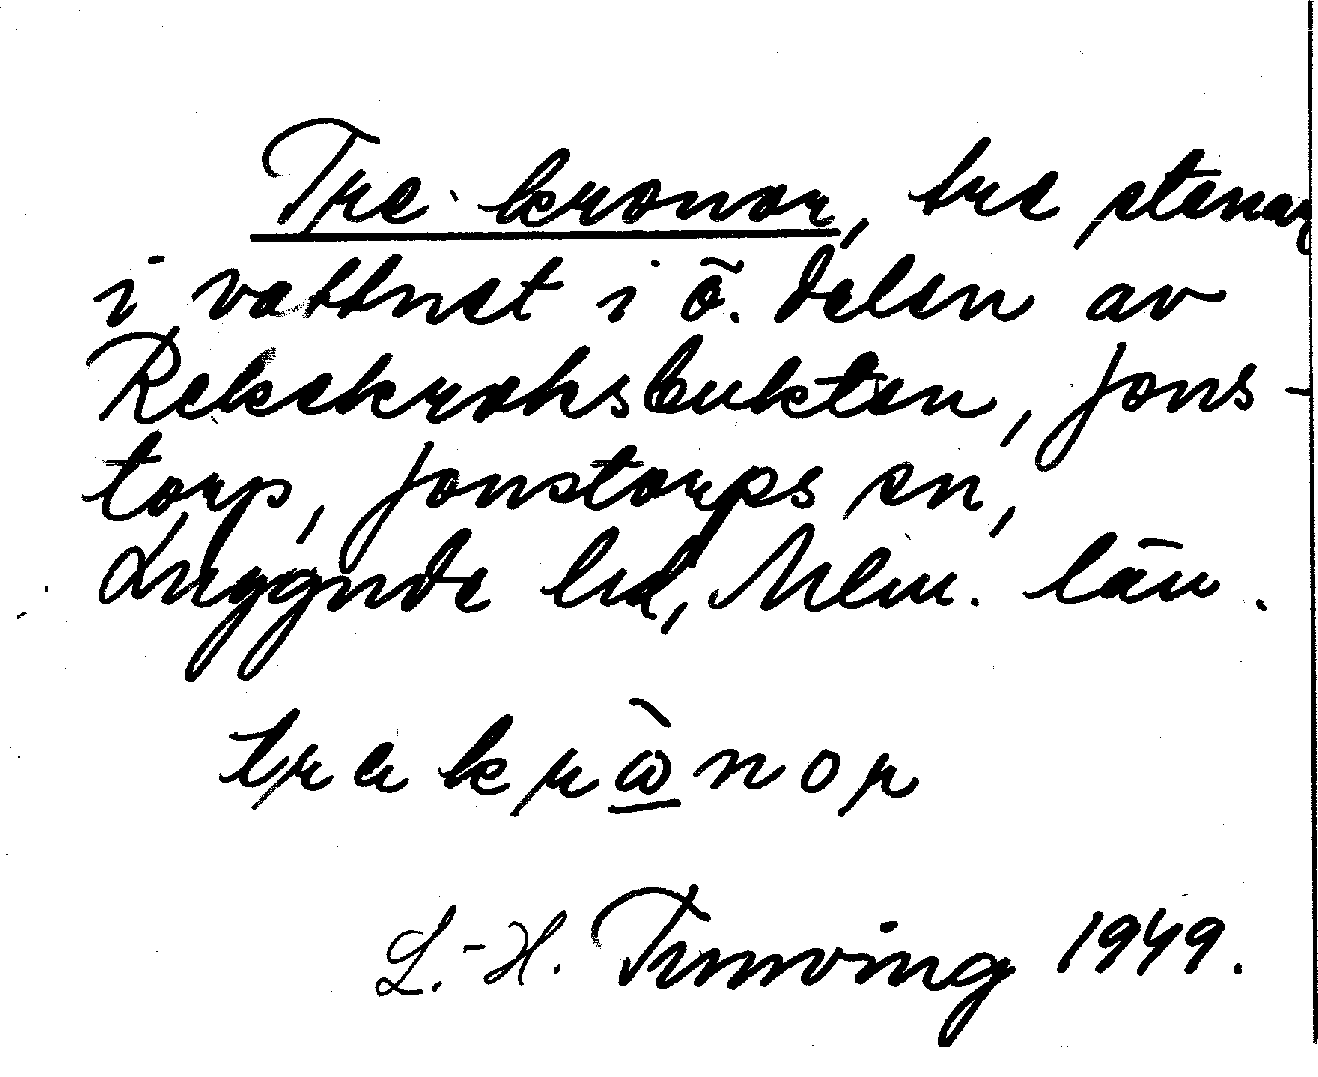 Tre kronor, tre stenar
i vattnet i ö. delen av
Rekekroksbukten, Jons-
torp, Jonstorps sn,
Luggude hd, Mlm. län.
tre krònor
L.-H. Tunving 1949.